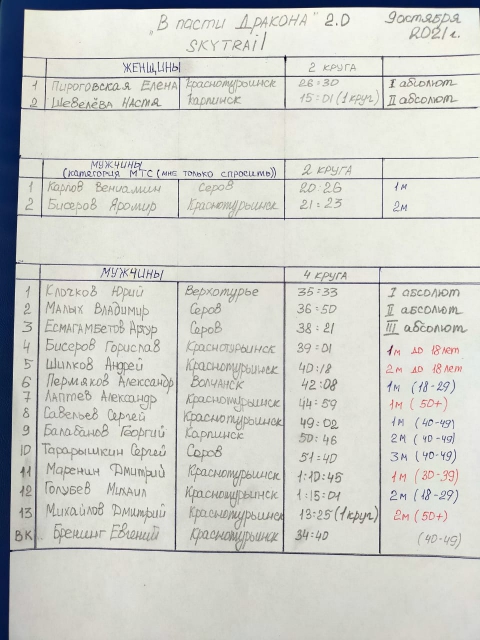 "В пасти Дракона" 2.0 9 октября
SKYTRail 2021 г.
ЖЕНЩИНЫ 2 КРУГА
1 Пироговская Елена Краснотурьинск 26:30 I абсолют
2 Шевелёва Настя Карпинск 15:01 (1 круг) II абсолют
МУЖЧИНЫ
(категория МТС (мне только спросить)) 2 КРУГА
1 Карпов Вениамин Серов 20:26 1м
2 Бисеров Яромир Краснотурьинск 21:23 2м
МУЖЧИНЫ 4 КРУГА
1 Клочков Юрий Верхотурье 35=33 I абсолют
2 Малых Владимир Серов 36=50 II абсолют
3 Есмагамбетов Артур Серов 38:21 III абсолют
4 Бисеров Горислав Краснотурьинск 39:01 1м до 18 лет
5 Шилков Андрей Краснотурьинск 40:18 2м до 18 лет
6 Пермяков Александр Волчанск 42:08 1м (18-29)
7 Лаптев Александр Краснотурьинск 44=59 1м (50+)
8 Савельев Сергей Краснотурьинск 49:02 1м (40-49)
9 Балабанов Георгий Карпинск 50=46 2м (40-49)
10 Тарарышкин Сергей Серов 51:40 3м (40-49)
11 Маренин Дмитрий Краснотурьинск 1:10:45 1м (30-39)
12 Голубев Михаил Краснотурьинск 1:15:01 2м (18-29)
13 Михайлов Дмитрий Краснотурьинск 13:25 (1 круг) 2м (50+)
ВК Бренинг Евгений Краснотурьинск 34:40 (40-49)